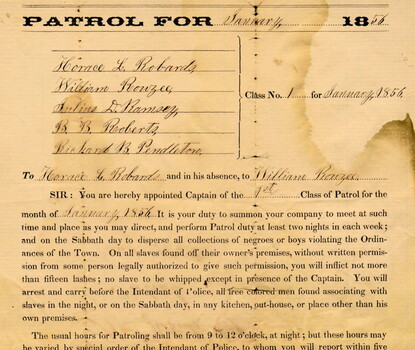 PATROL FOR January, 1856
Horace L. Robards
William Rowzee
Julius D. Ramsey,
B. B. Roberts
Richard B. Pendleton,
Class No. 1 for January, 1856
To Horace L. Robards and in his absence, to William Rowzee.
SIR: You are hereby appointed Captain of the 1st Class of Patrol for the
month of January, 1856. It is your duty to summon your company to meet at such
time and place as you may direct, and perform Patrol duty at least two nights in each week;
and on the Sabbath day to disperse all collections of negroes or boys violating the Ordin-
ances of the Town. On all slaves found off their owner's premises, without written permis-
sion from some person legally authorized to give such permission, you will inflict not more
than fifteen lashes; no slave to be whipped except in presence of the Captain. You will
arrest and carry before the Intendant of Police, all free colored men found associating with
slaves in the night, or on the Sabbath day, in any kitchen, out-house, or place other than his
own premises.
The usual hours for Patroling shall be from 9 to 12 o'clock, at night; but these hours may
be varied by special order of the Intendant of Police, to whom you will report within five